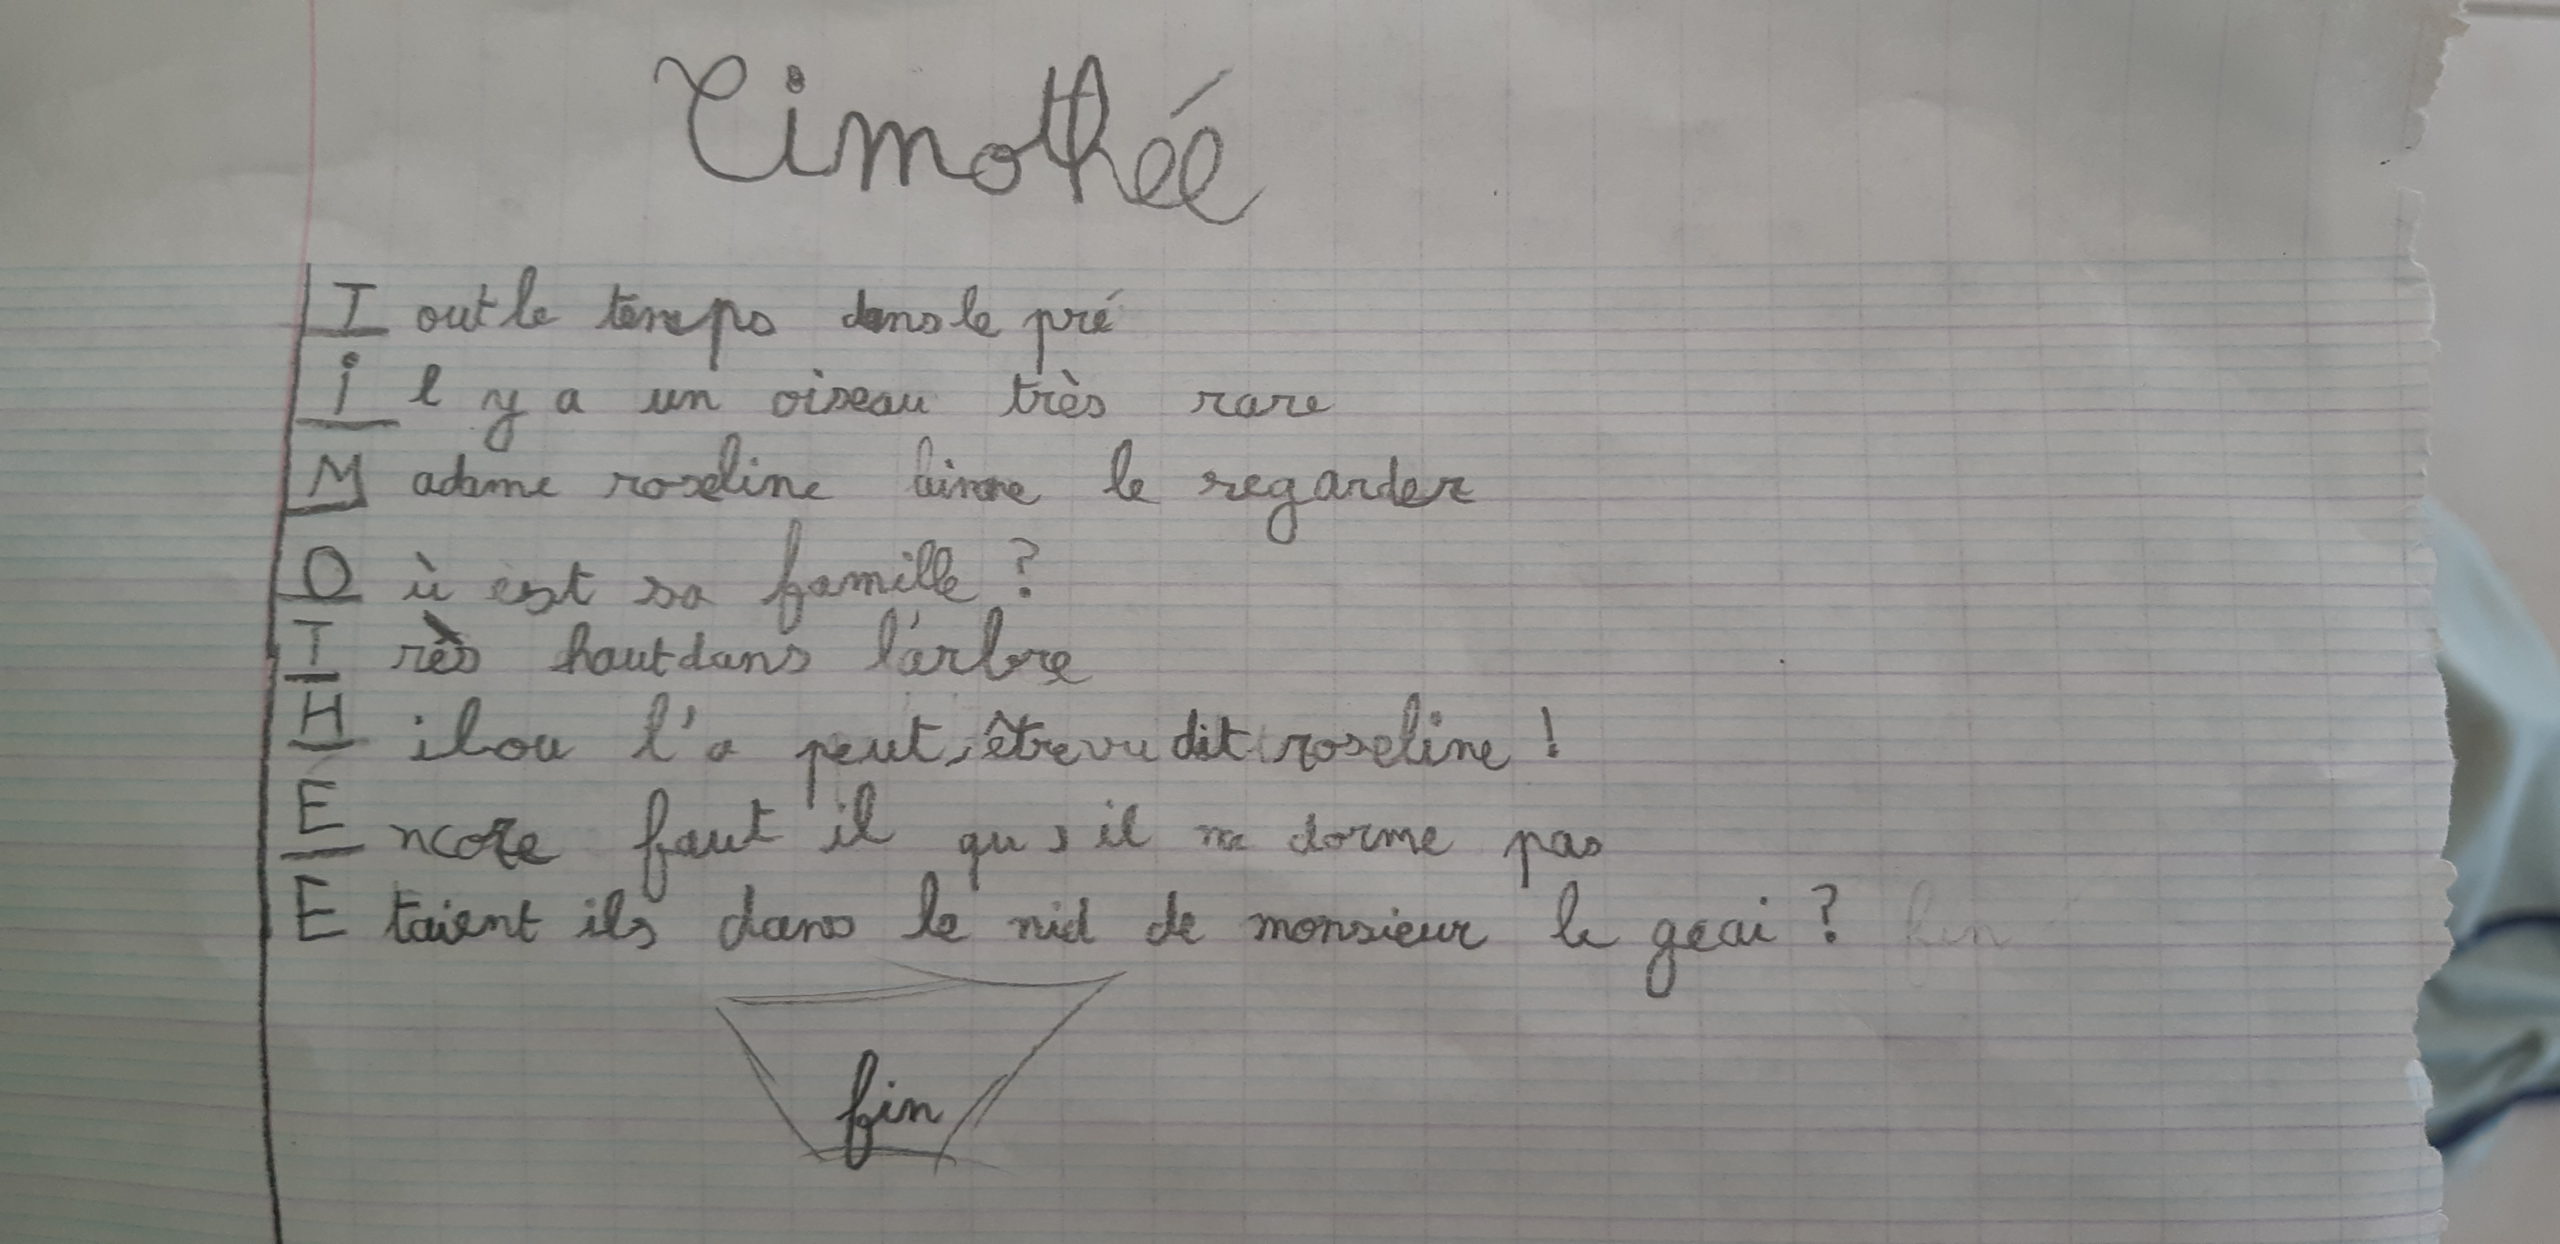 Timothée
Tout le temps dans le pré
il y a un oiseau très rare
Madame roseline le regarder
Où est sa famille ?
Très haut dans l'arbre
Hilou l'a peut-être vu dit roseline !
Encore faut il qu'il ne dorme pas
Etaient ils dans le nid de monsieur le geai ? fin
fin